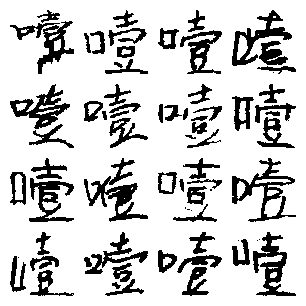 噎噎噎噎
噎噎噎噎
噎噎噎噎
噎噎噎噎